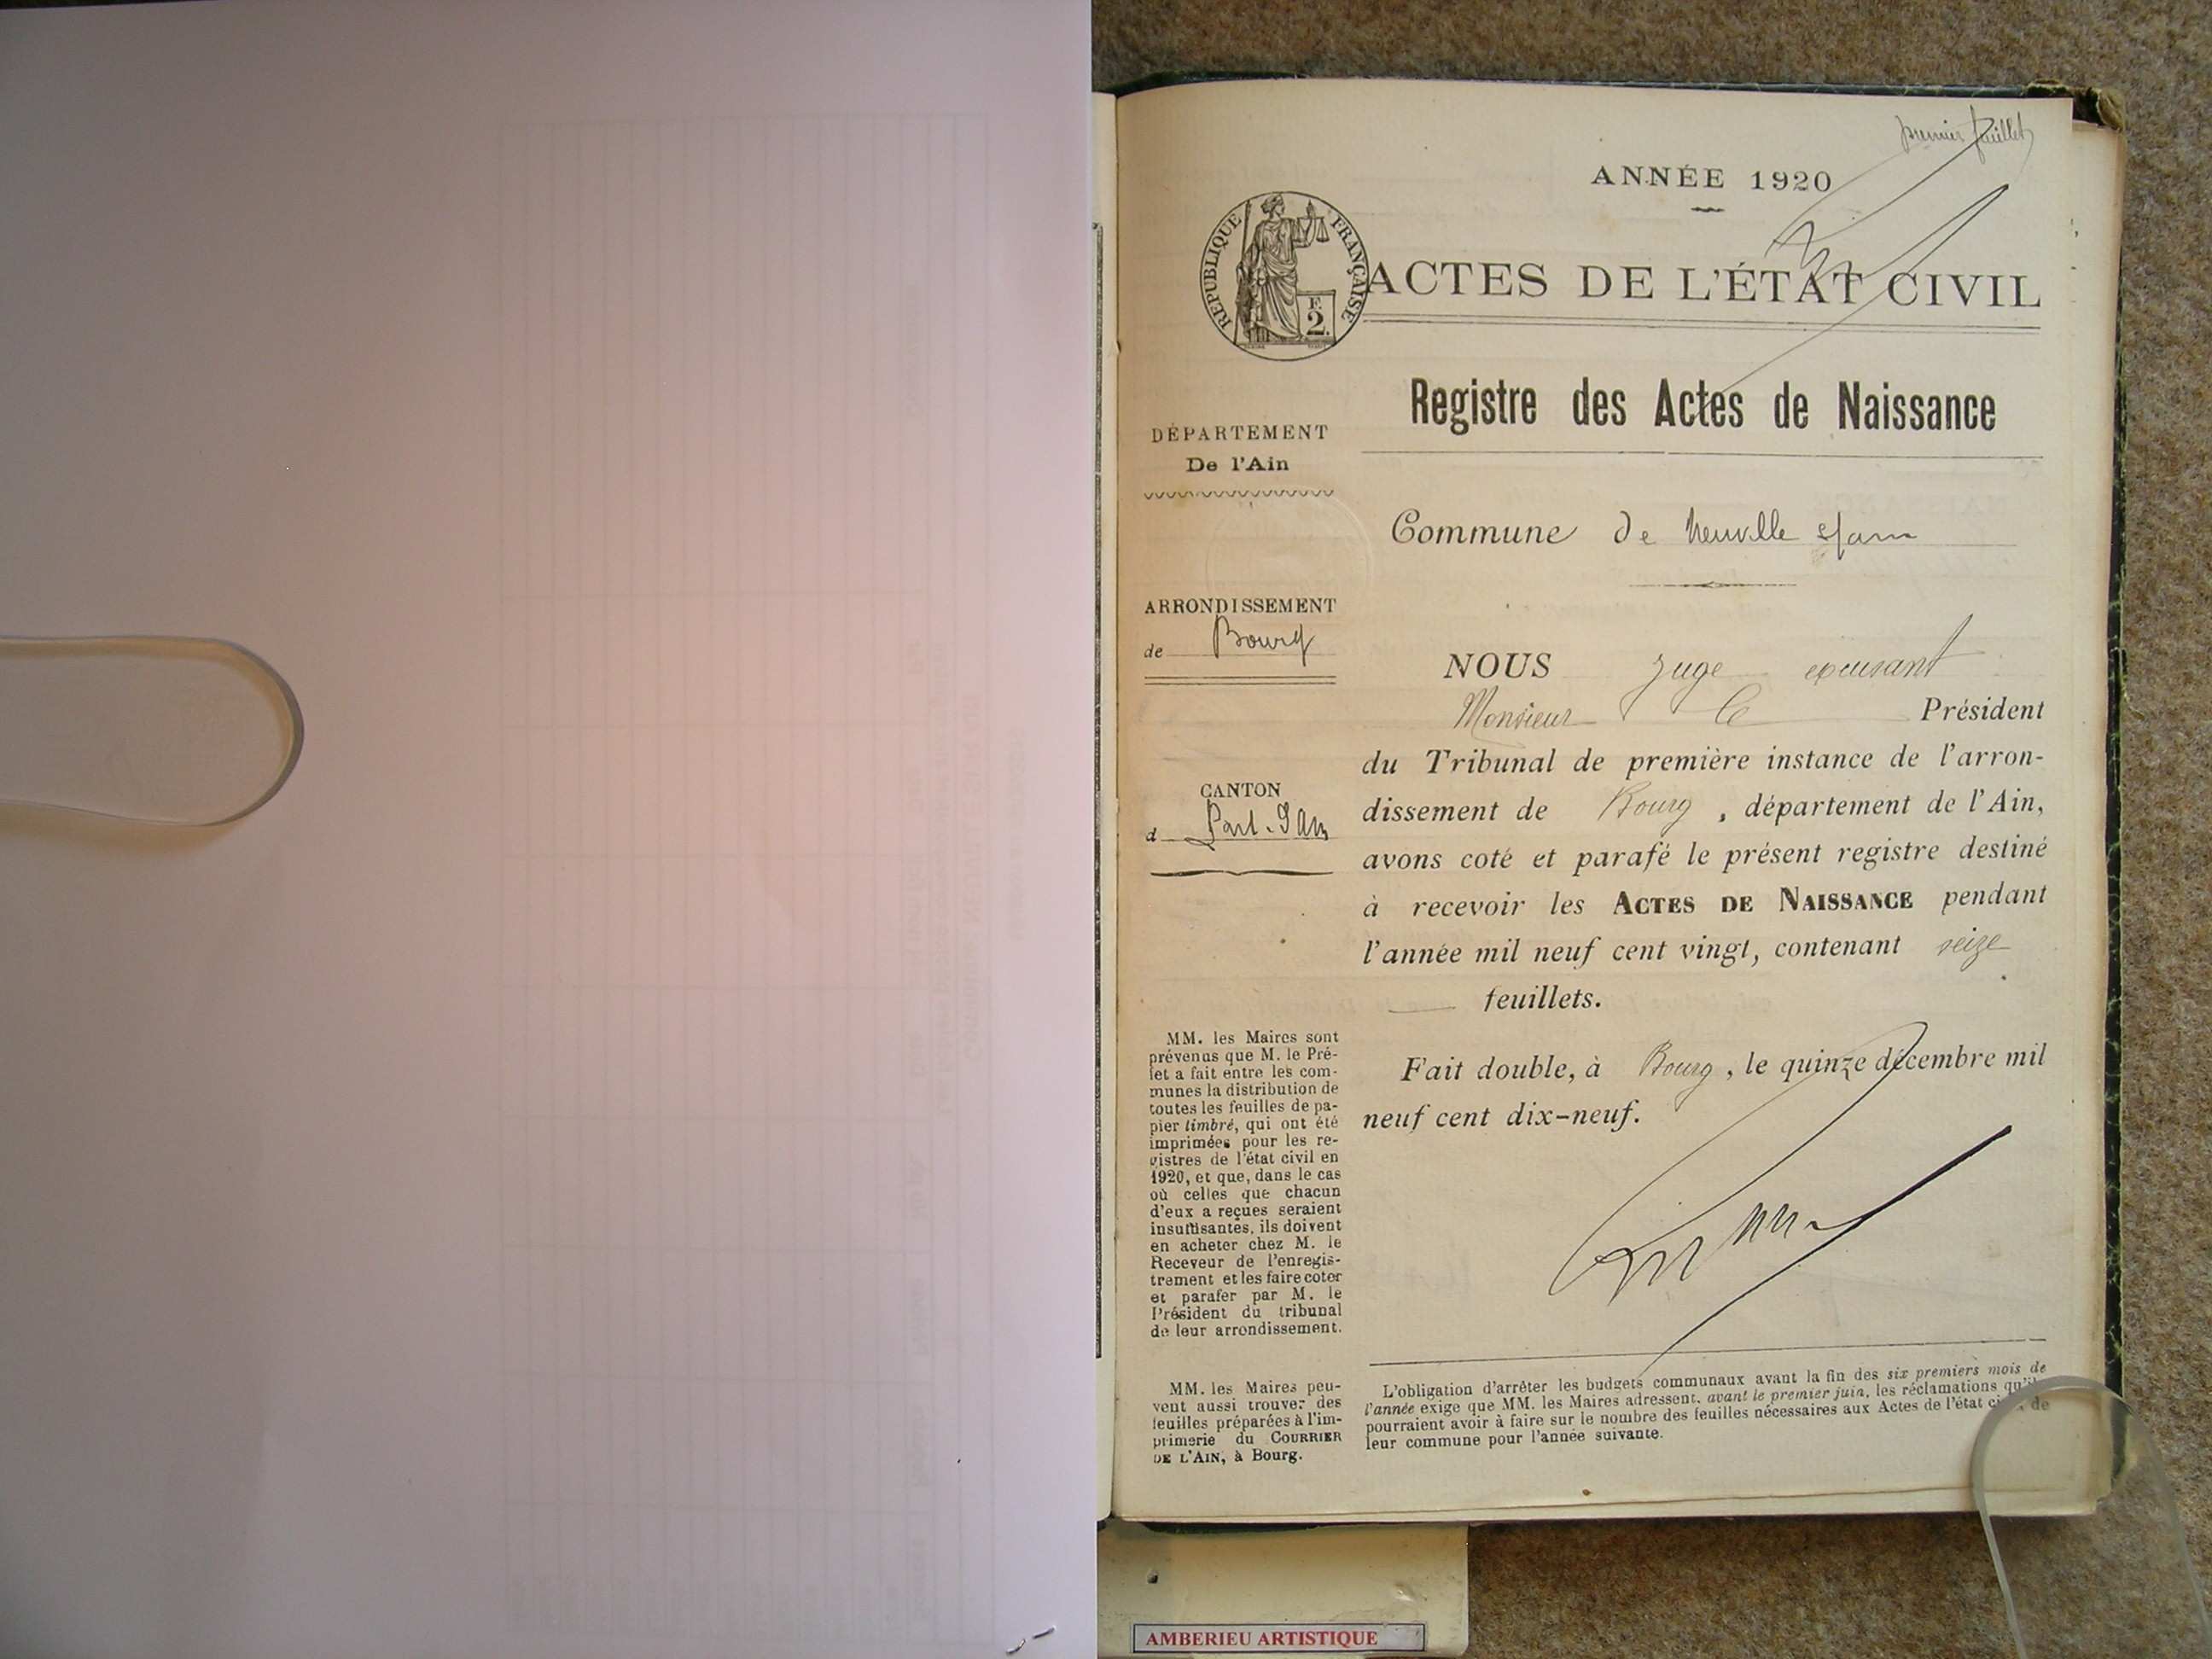 premier feuillet
ANNÉE 1920
RÉPUBLIQUE FRANÇAISE
F.
2.
ACTES DE L'ÉTAT CIVIL
Registre des Actes de Naissance
DÉPARTEMENT
De l'Ain
Commune de Neuville s/ain
ARRONDISSEMENT
de Bourg
CANTON
d Pont-d'Ain
NOUS Juge excusant
Monsieur le Président
du Tribunal de première instance de l'arron-
dissement de Bourg, département de l'Ain,
avons coté et parafé le présent registre destiné
à recevoir les ACTES DE NAISSANCE pendant
l'année mil neuf cent vingt, contenant seize
feuillets.
Fait double, à Bourg, le quinze décembre mil
neuf cent dix-neuf.
MM. les Maires sont
prévenus que M. le Pré-
fet a fait entre les com-
munes la distribution de
toutes les feuilles de pa-
pier timbré, qui ont été
imprimées pour les re-
gistres de l'état civil en
1920, et que, dans le cas
où celles que chacun
d'eux a reçues seraient
insuffisantes, ils doivent
en acheter chez M. le
Receveur de l'enregis-
trement et les faire coter
et parafer par M. le
Président du tribunal
de leur arrondissement.
MM. les Maires peu-
vent aussi trouver des
feuilles préparées à l'im-
primerie du COURRIER
DE L'AIN, à Bourg.
L'obligation d'arrêter les budgets communaux avant la fin des six premiers mois de
l'année exige que MM. les Maires adressent, avant le premier juin, les réclamations qu'ils
pourraient avoir à faire sur le nombre des feuilles nécessaires aux Actes de l'état civil de
leur commune pour l'année suivante.
AMBERIEU ARTISTIQUE